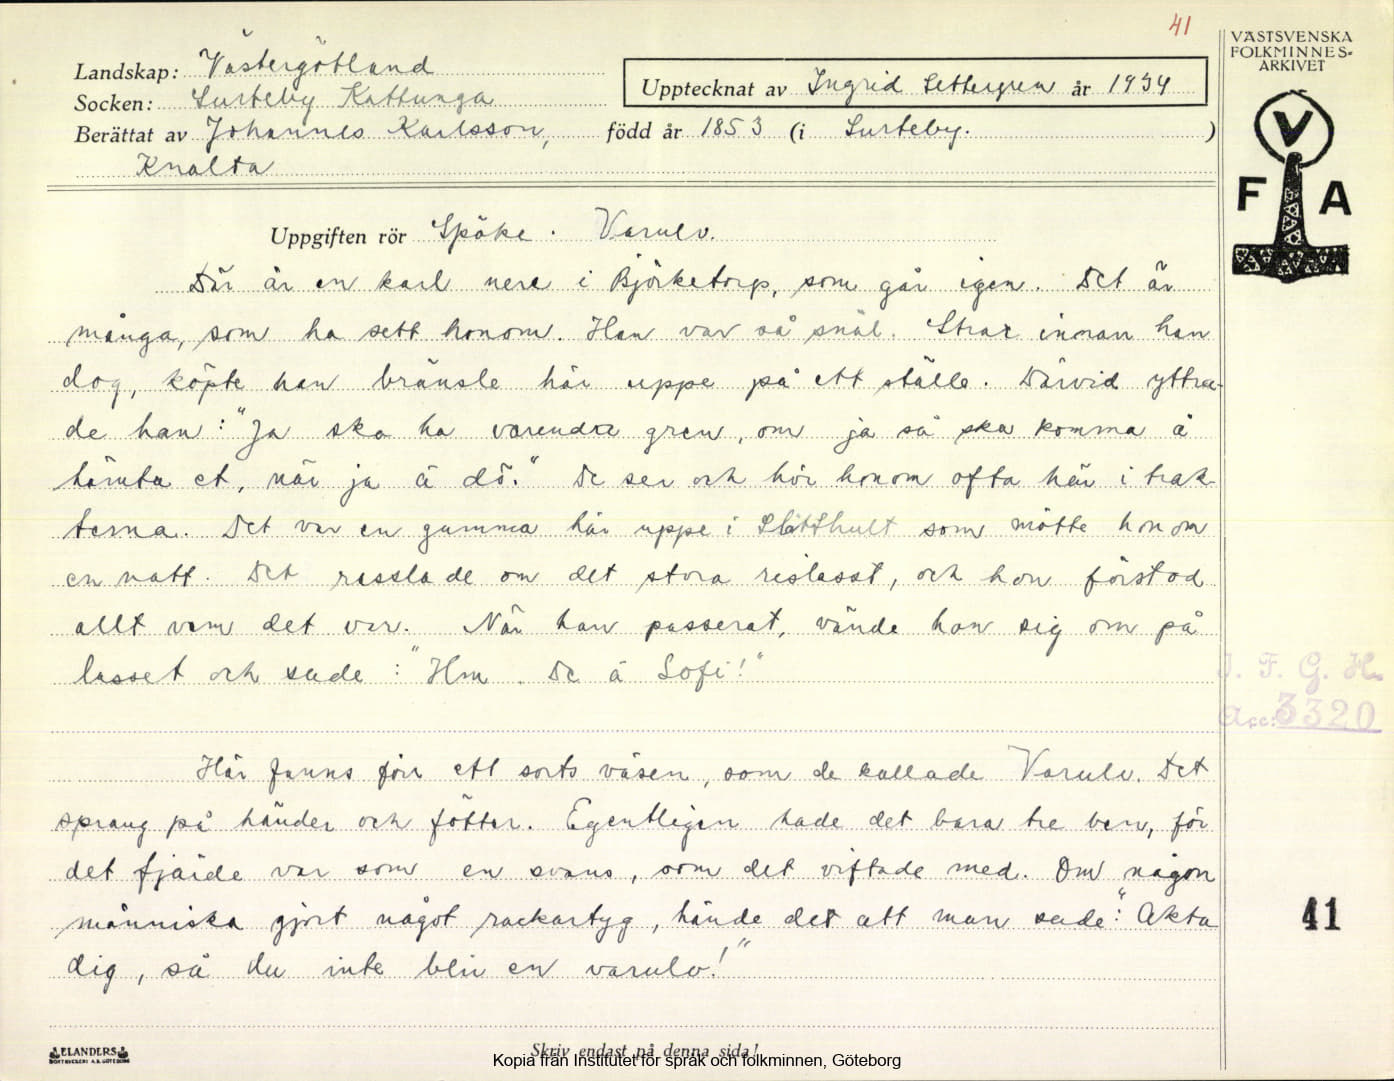 41
VÄSTSVENSKA
FOLKMINNES-
ARKIVET
Landskap: Västergötland
Socken: Surteby Kattunga
Upptecknat av Ingrid Settergren år 1934
Berättat av Johannes Karlsson, född år 1853 (i Surteby. )
Knalta
V
F A
Uppgiften rör Spöke. Varulv.
Där är en karl nere i Björketorp, som går igen. Det är
många, som ha sett honom. Han var så snäl. Strax innan han
dog, köpte han bränsle här uppe på ett ställe. Därvid yttra-
de han: "Ja ska ha varendra gren, om ja så ska komma å
hämta et, när ja ä dö." De ser och hör honom ofta här i trak-
terna. Det var en gumma här uppe i Slätthult som mötte honom
en natt. Det rasslade om det stora rislasst, och hon förstod
allt vem det var. När han passerat, vände han sig om på
lasset och sade: "Hm. De ä Sofi!"
I. F. G. H.
Acc: 3320
Här fanns förr ett sorts väsen, som de kallade Varulv. Det
sprang på händer och fötter. Egentligen hade det bara tre ben, för
det fjärde var som en svans, som det viftade med. Om någon
människa gjort något rackartyg, hände det att man sade: "Akta
dig, så du inte blir en varulv!"
41
ELANDERS
BOKTRYCKERI A.B. GÖTEBORG
Skriv endast på denna sida!
Kopia från Institutet för språk och folkminnen, Göteborg